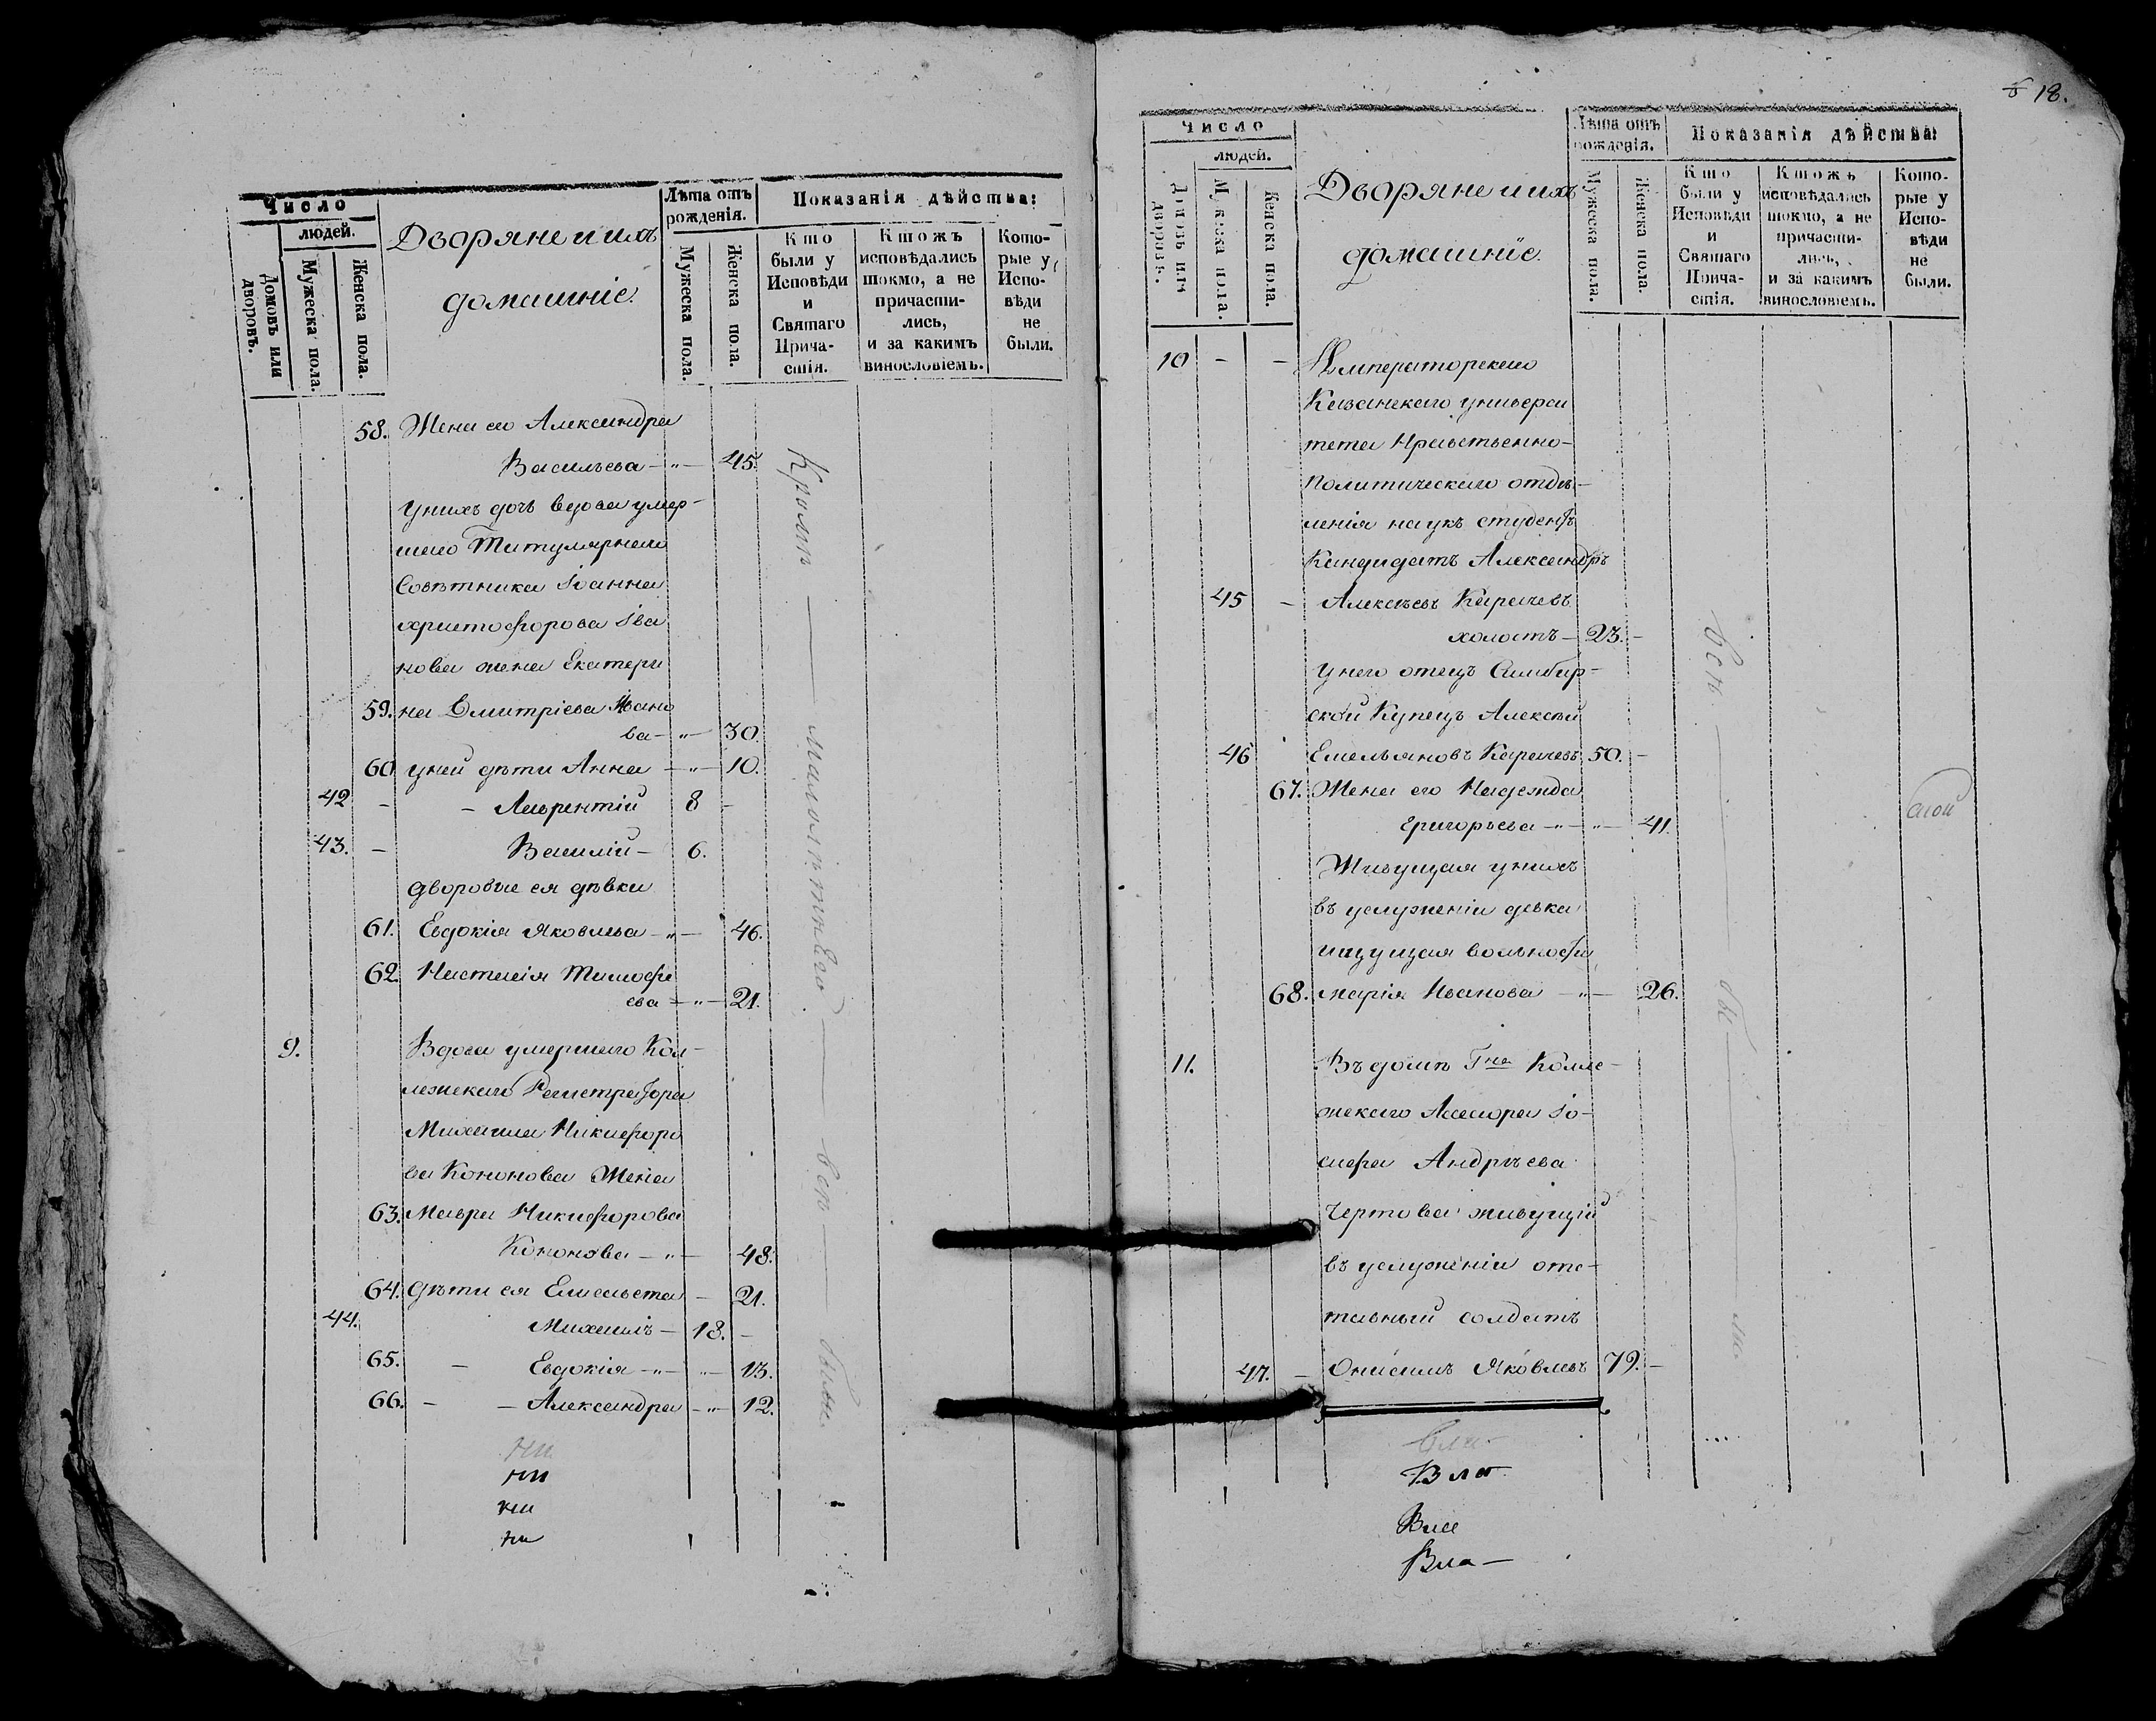 Число
людей.
Домовъ или дворовъ.
Мужеска пола.
Женска пола.
Дворяне и ихъ
домашніе.
Лѣта отъ
рожденія.
Мужеска пола.
Женска пола.
Показанія дѣйства:
Кто
были у
Исповѣди
и
Святаго
Прича-
стія.
Ктожъ
исповѣдались
токмо, а не
причасти-
лись,
и за какимъ
винословіемъ.
Кото-
рые у
Испо-
вѣди
не
были.
58. Жена его Александра
Васильева - " - 45.
у нихъ дочь вдова умер-
шего Титулярнаго
Совѣтника Іоанна
христофорова Ива
нова жена Екатери
59. на Дмитріева Ивано
ва - " - 30.
60 у ней дѣти Анна - " - 10.
42 - - Лаврентій 8 -
43. - Василій - 6.
дворовые ея дѣвки
61. Евдокія Яковлева - " - 46.
62. Настасія Тимофе
ева - " - 21.
9. Вдова умершаго Кол-
лежскаго Регистратора
Михаила Никифоро
ва Кононова Жена
63. Мавра Никифорова
Кононова - " - 48.
64. дѣти ея Елисавета - 21.
44. Михаилъ - 18. -
65. - Евдокія - " - " - 13.
66. - - Александра - " - 12.
Кромѣ малолѣтнего всѣ были
ни
ни
ни
ни
18.
Число
людей.
Домовъ или дворовъ.
Мужеска пола.
Женска пола.
Дворяне и ихъ
домашніе.
Лѣта отъ
рожденія.
Мужеска пола.
Женска пола.
Показанія дѣйства:
Кто
были у
Исповѣди
и
Святаго
Прича-
стія.
Ктожъ
исповѣдались
токмо, а не
причасти-
лись,
и за какимъ
винословіемъ.
Кото-
рые у
Испо-
вѣди
не
были.
10 - - Императорскаго
Казанскаго универси
тета Нравственно-
политическаго отдѣ-
ленія наукъ студентъ
Кандидатъ Александръ
45 - Алексѣевъ Карачевъ
холостъ - 23. -
у него отецъ Симбир-
ской Купецъ Алексѣй
46 Емельяновъ Карачевъ 50. -
67. Жена его Надежда
Григорьева - " - " - 41.
Живущая у нихъ
въ услуженіи девка
ищущая вольности
68. Марія Иванова - " - 26.
11. Въ домѣ Гна Колле-
жскаго Асесора Іо-
сифа Андрѣева
Чертова живущій
въ услуженіи отс-
тавный солдатъ
47. - Онисимъ Яковлевъ 79. -
всѣ бы ли
Вла-
Вла-
Вла-